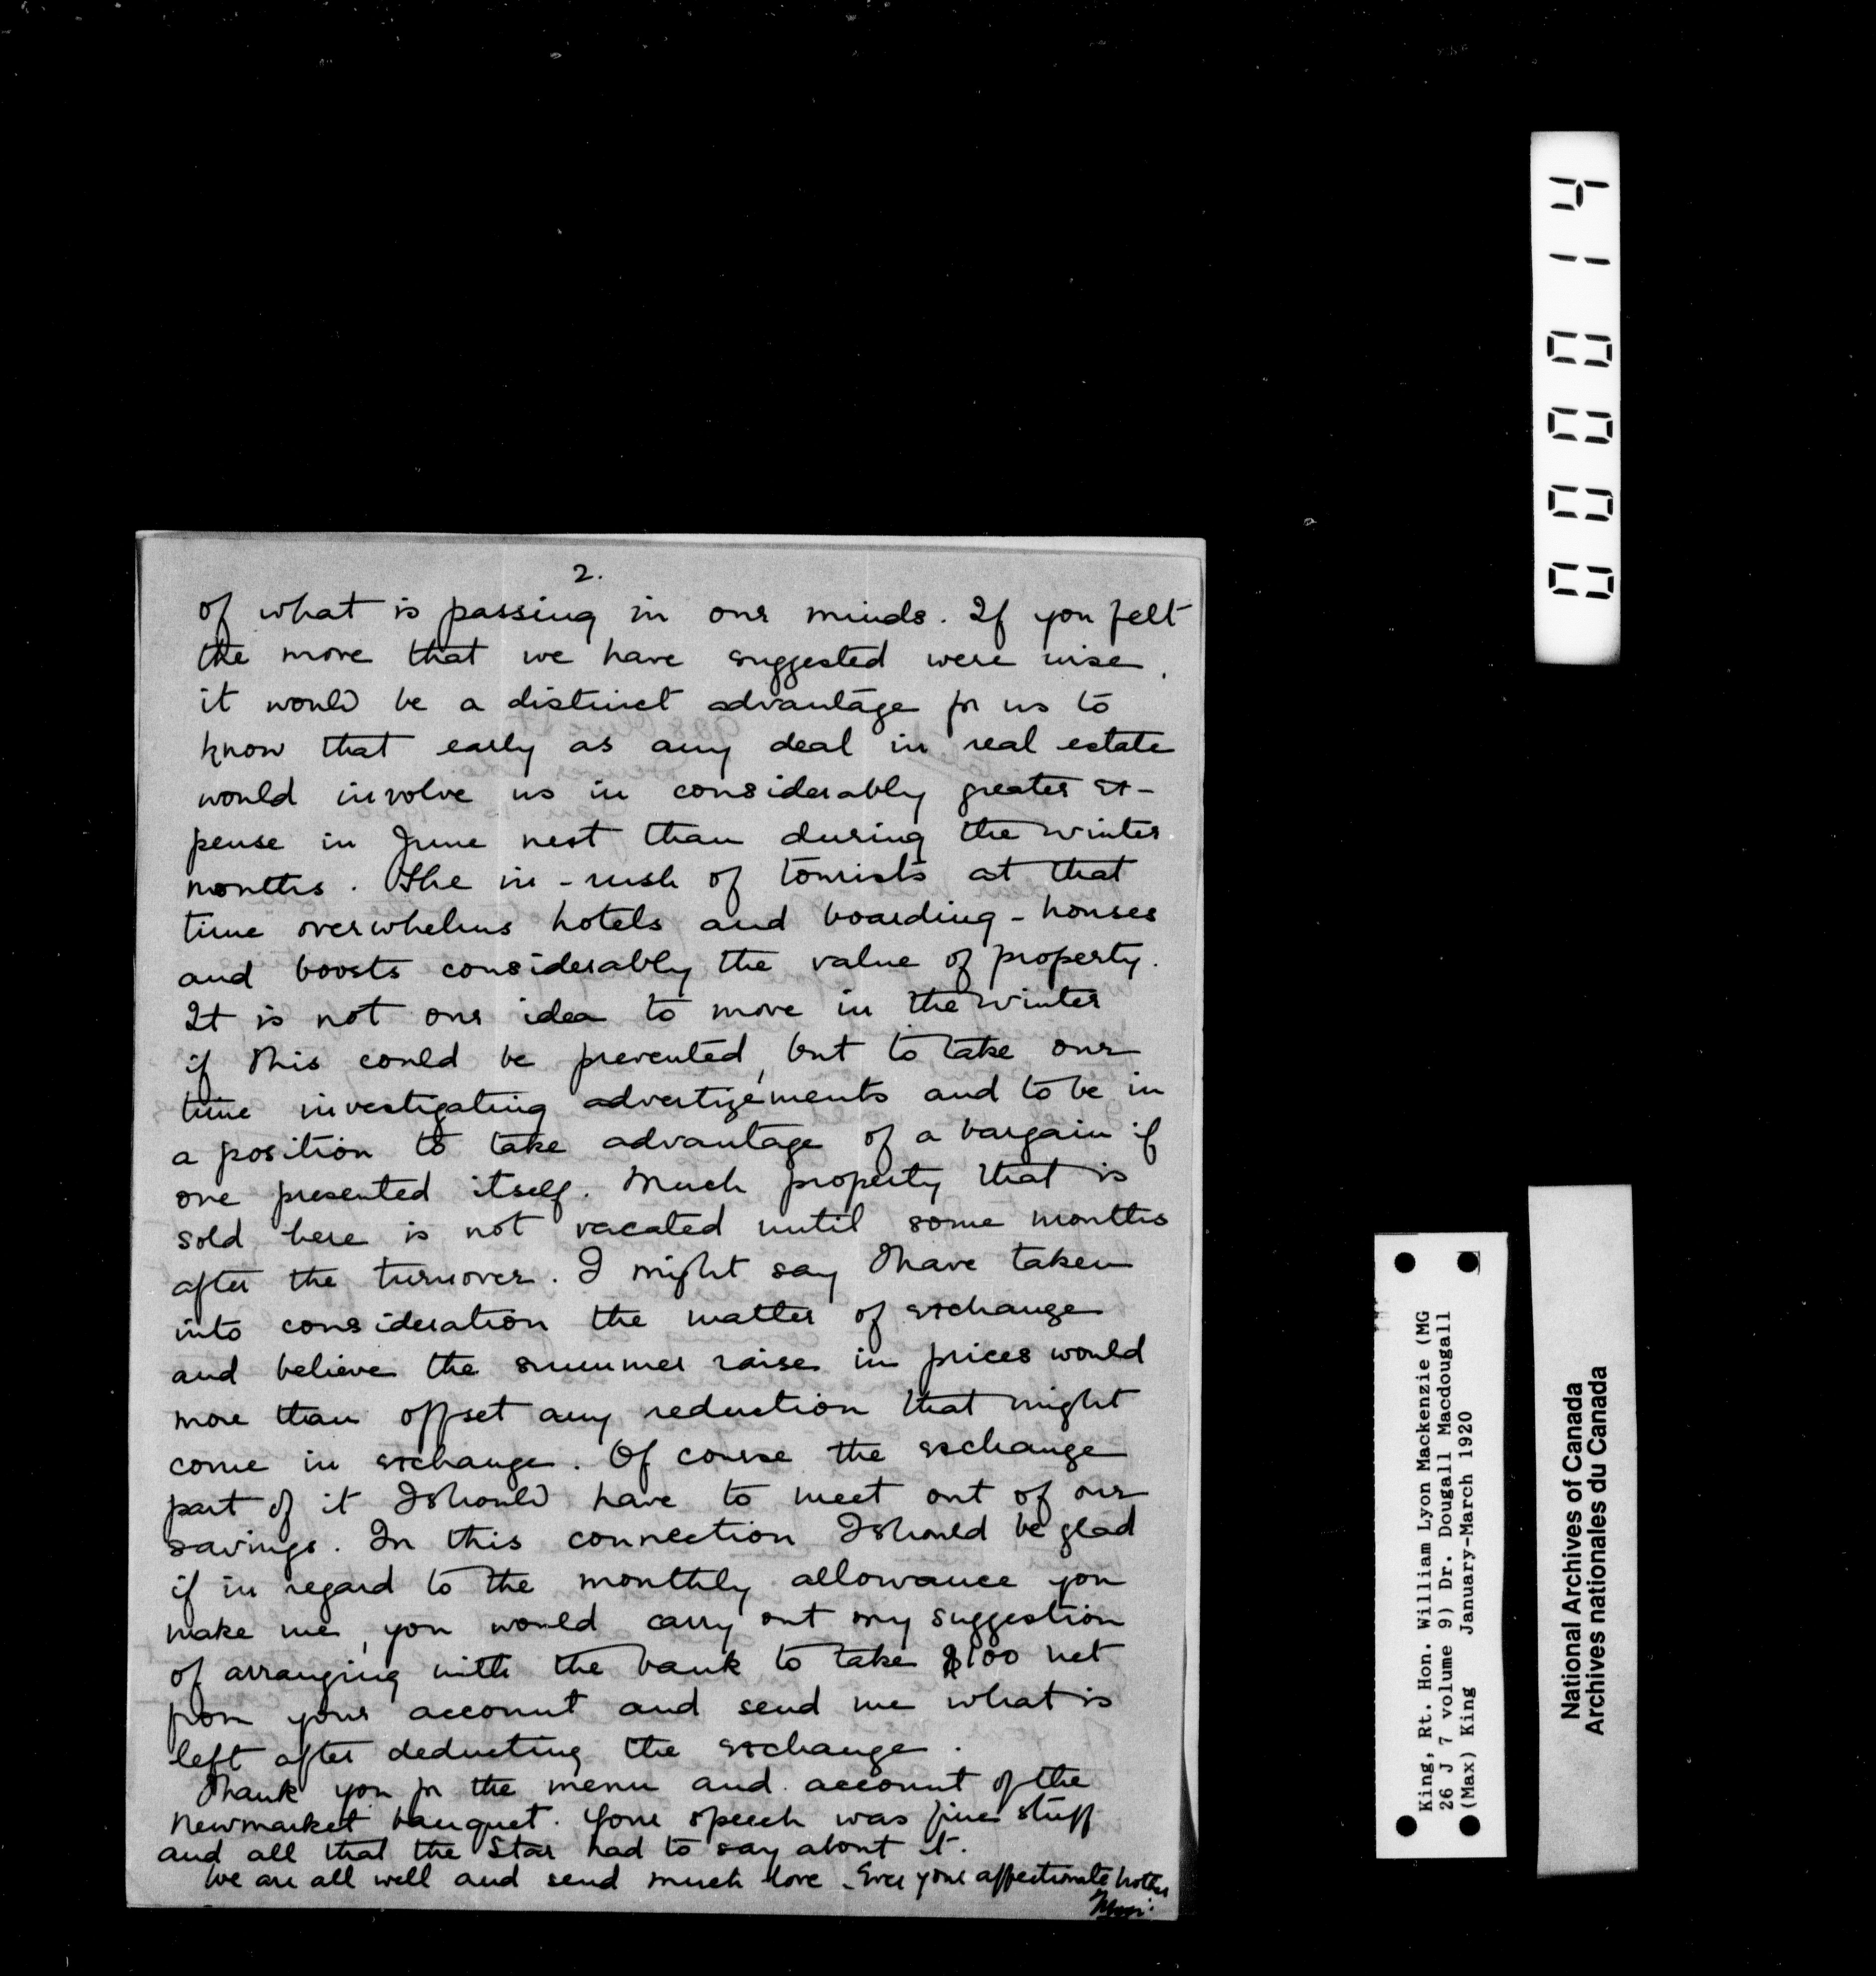 2.
of what is passing in our minds. If you felt
the move that we have suggested were wise,
it would be a distinct advantage for us to
know that early as any deal in real estate
would involve us in considerably greater ex-
pense in June next than during the winter
months. The in-rush of tourists at that
time overwhelms hotels and boarding-houses
and boosts considerably the value of property.
It is not our idea to move in the winter
if this could be prevented, but to take our
time investigating advertizements and to be in
a position to take advantage of a bargain if
one presented itself. Much property that is
sold here is not vacated until some months
after the turnover. I might say I have taken
into consideration the matter of exchange
and believe the summer raise in prices would
more than offset any reduction that might
come in exchange. Of course the exchange
part of it I should have to meet out of our
savings. In this connection I should be glad
if in regard to the monthly allowance you
make me, you would carry out my suggestion
of arranging with the bank to take $100 net
from your account and send me what is
left after deducting the exchange.
Thank you for the menu and account of the
Newmarket banquet. Your speech was fine stuff
and all that the Star had to say about it.
We are all well and send much love. Ever your affectionate brother
Max.
000014
King, Rt. Hon. William Lyon Mackenzie (MG
26 J 7 volume 9) Dr. Dougall Macdougall
(Max) King January-March 1920
National Archives of Canada
Archives nationales du Canada